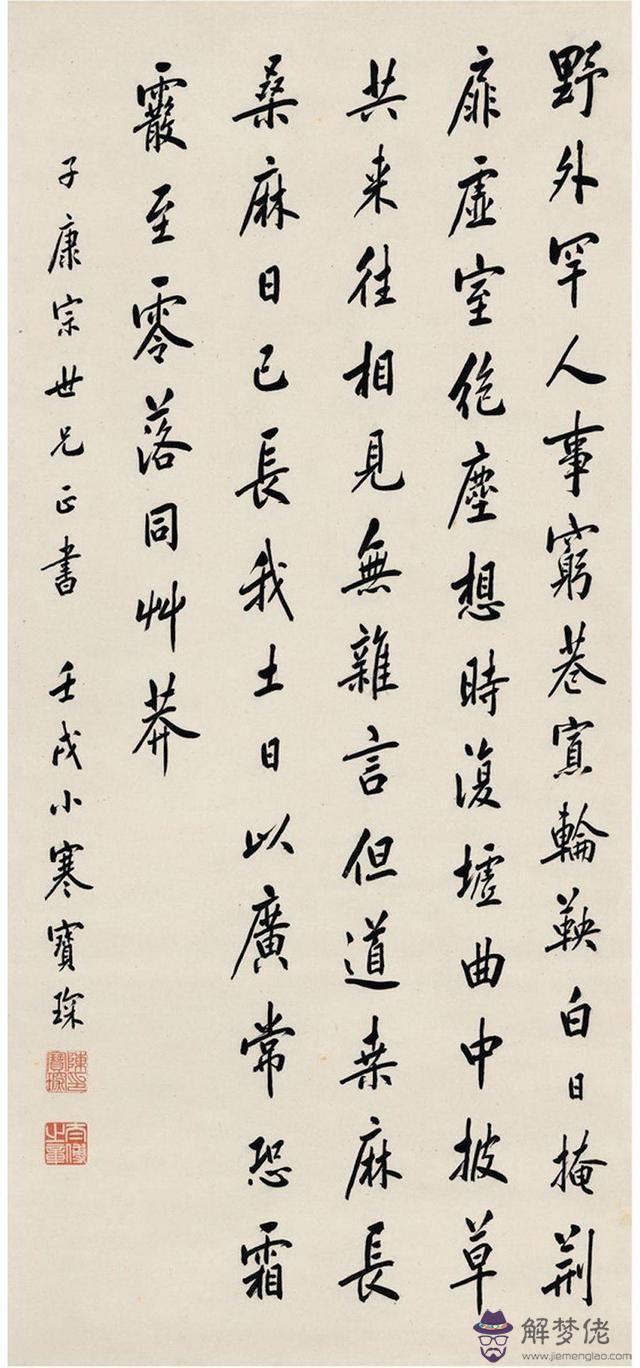 野外罕人事窮巷寡輪鞅白日掩荊
扉虛室絕塵想時復墟曲中披草
共来往相見無雜言但道桒麻長
桑麻日已長我土日以廣常恐霜
霰至零落同艸莽
子康宗世兄正書 壬戌小寒寶琛
陳印寶琛
太傅之章
解梦佬
www.jiemenglao.com